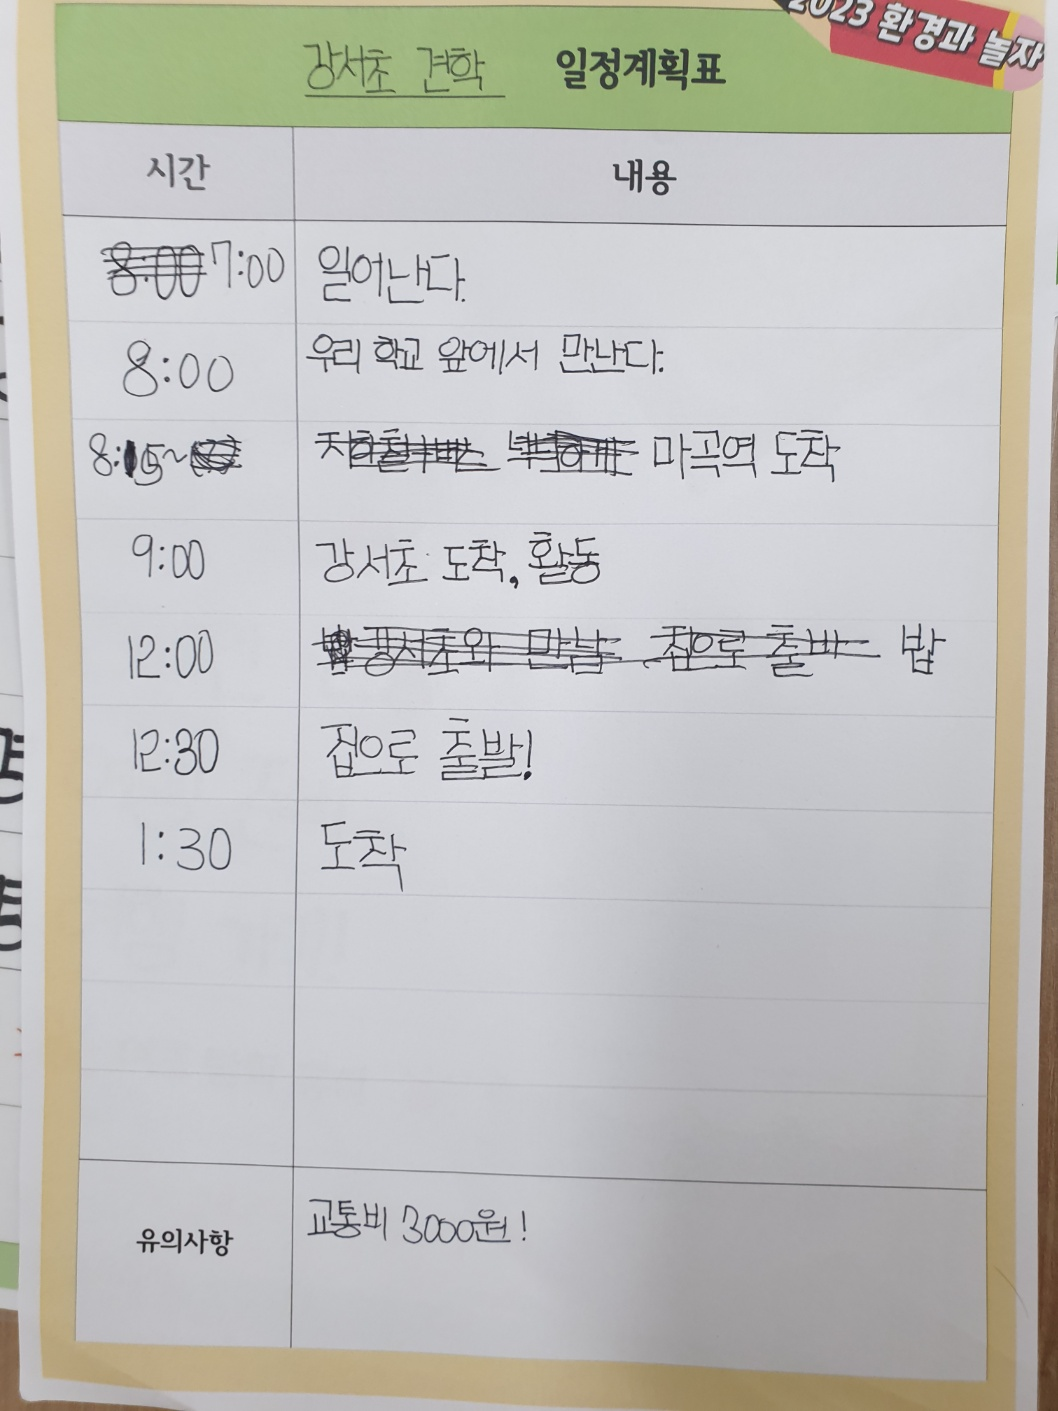 2023 환경과 놀자
강서초 견학 일정계획표
시간 내용
8:00 7:00 일어난다.
8:00 우리 학교 앞에서 만난다.
8:15~ 마곡역 도착
9:00 강서초 도착, 활동
12:00 강서초와 만남 집으로 출바 밥
12:30 집으로 출발!
1:30 도착
유의사항 교통비 3000원!